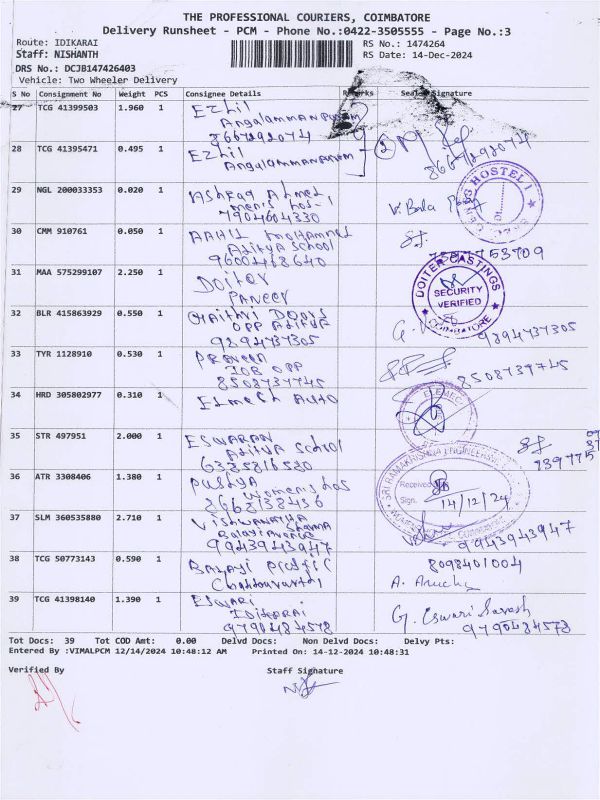 THE PROFESSIONAL COURIERS, COIMBATORE
Delivery Runsheet - PCM - Phone No.:0422-3505555 - Page No.:3
Route: IDIKARAI
RS No.: 1474264
Staff: NISHANTH
RS Date: 14-Dec-2024
DRS No.: DCJB147426403
Vehicle: Two Wheeler Delivery
S No Consignment No Weight PCS Consignee Details Remarks Seal Signature
27 TCG 41399503 1.960 1 Ezhil
Angalammanpuram
8667292074
28 TCG 41395471 0.495 1 Ezhil
Angalammanpuram
2
8667292074
29 NGL 200033353 0.020 1 Ashraq Ahmed
mens hos-1
7904604330
V. Bala
HOSTEL 1
30 CMM 910761 0.050 1 AAHIL mohammed
Aditya School
9600468640
53709
31 MAA 575299107 2.250 1 DOITER
PANEER
DOITER CASTINGS
SECURITY
VERIFIED
COIMBATORE
32 BLR 415863929 0.550 1 Gaithri DOORS
OPP Aditya
9894737305
9894737305
33 TYR 1128910 0.530 1 Praveen
IOB OPP
8508737745
8508739745
34 HRD 305802977 0.310 1 Elmech Auto
35 STR 497951 2.000 1 ESWARAN
Aditya School
6335816530
36 ATR 3308406 1.380 1 Pushya
womens hos
8668138436
SRI RAMAKRISHNA ENGINEERING
Received
Sign.
14/12/24
COIMBATORE
37 SLM 360535880 2.710 1 Vishwanatha Sharma
Balaji Avenue
9943943947
9943943947
38 TCG 50773143 0.590 1 Balaji pacific
Chakkaravarthi
8098401004
A. Anucha
39 TCG 41398140 1.390 1 Eswari
IDIKARAI
9790484578
G. Eswari Suresh
9790484578
Tot Docs: 39 Tot COD Amt: 0.00 Delvd Docs: Non Delvd Docs: Delvy Pts:
Entered By :VIMALPCM 12/14/2024 10:48:12 AM Printed On: 14-12-2024 10:48:31
Verified By Staff Signature